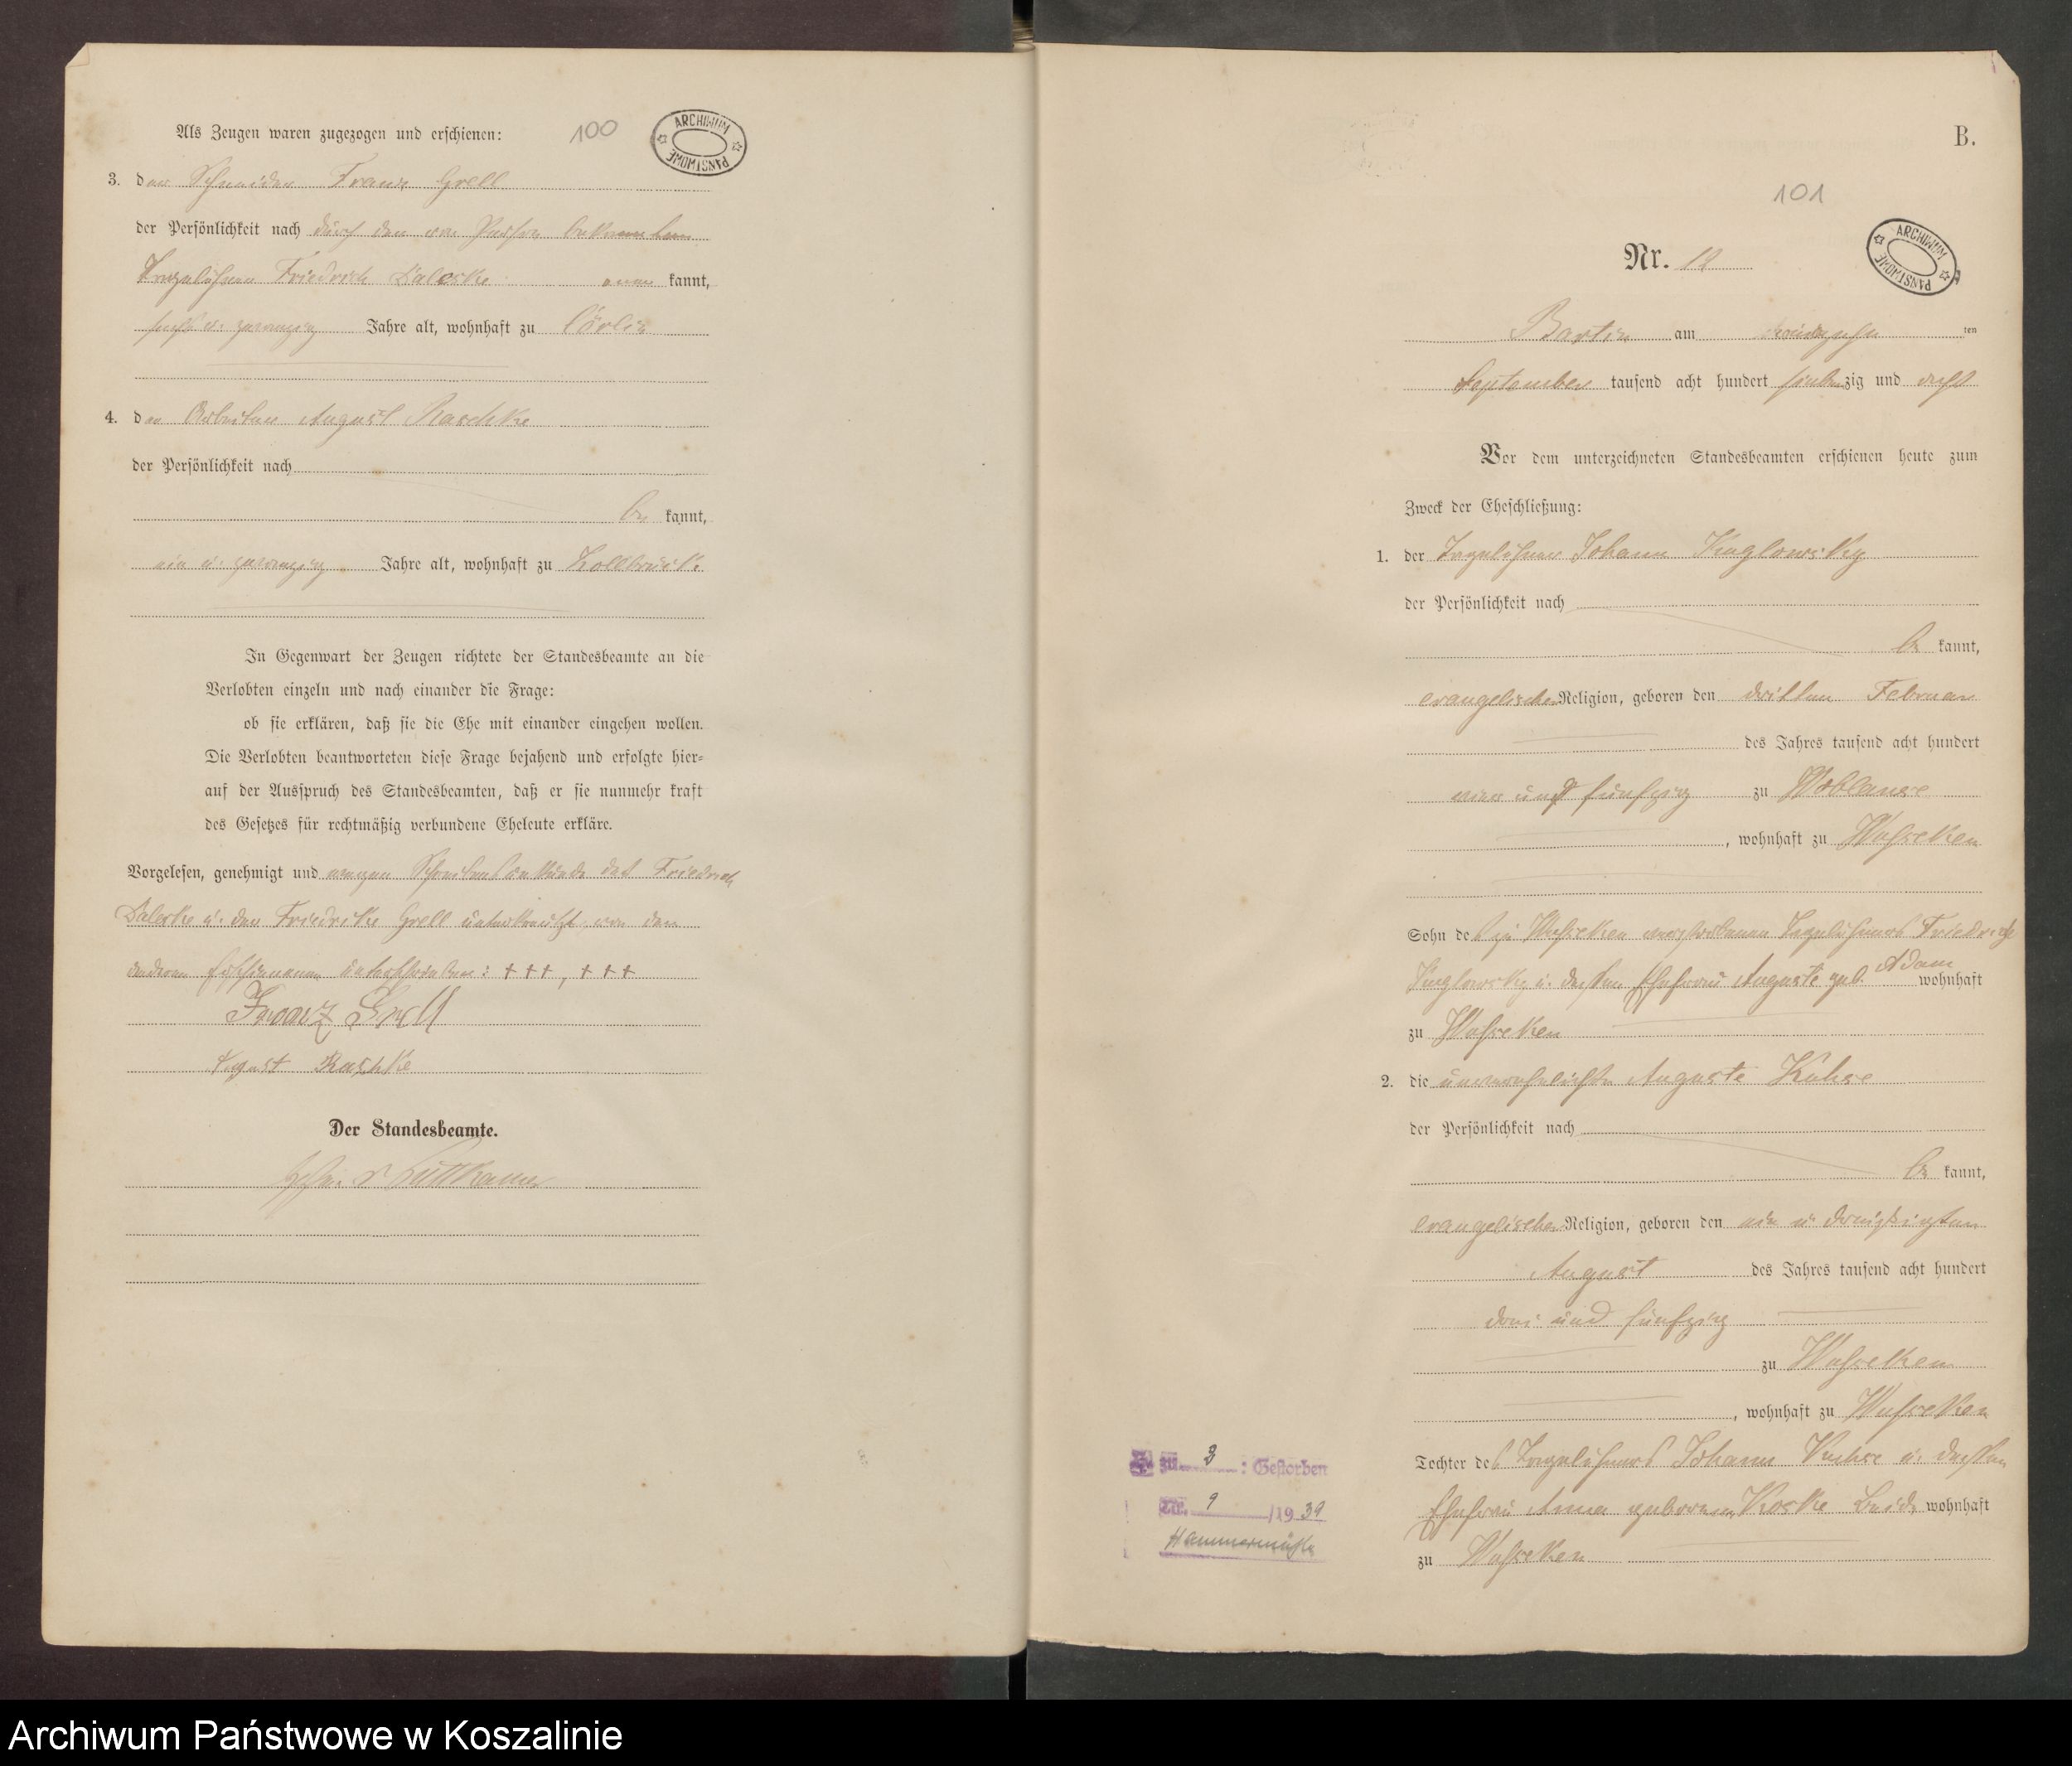 Als Zeugen waren zugezogen und erschienen:
100
ARCHIWUM PAŃSTWOWE
3. der Schneider Franz Grell
der Persönlichkeit nach durch den von Person bekannten
Tagelöhner Friedrich Daleske aner kannt,
sechs u. zwanzig Jahre alt, wohnhaft zu Cörlin
4. der Arbeiter August Raschke
der Persönlichkeit nach
be kannt,
ein u. zwanzig Jahre alt, wohnhaft zu Zollbrück
In Gegenwart der Zeugen richtete der Standesbeamte an die
Verlobten einzeln und nach einander die Frage:
ob sie erklären, daß sie die Ehe mit einander eingehen wollen.
Die Verlobten beantworteten diese Frage bejahend und erfolgte hier-
auf der Ausspruch des Standesbeamten, daß er sie nunmehr kraft
des Gesetzes für rechtmäßig verbundene Eheleute erkläre.
Vorgelesen, genehmigt und wegen Schreibensunkunde des Friedrich
Daleske u. der Friedrike Grell unterkreuzt, von den
anderen Erschienenen unterschrieben: +++, +++
Franz Grell
August Raschke
Der Standesbeamte.
v Puttkamer
B.
101
Nr. 12
ARCHIWUM PAŃSTWOWE
Bartin am ten
September tausend acht hundert siebenzig und acht
Vor dem unterzeichneten Standesbeamten erschienen heute zum
Zweck der Eheschließung:
1. der Tagelöhner Johann Kuglowsky
der Persönlichkeit nach
be kannt,
evangelischer Religion, geboren den dritten Februar
des Jahres tausend acht hundert
vier und fünfzig zu Woblanse
, wohnhaft zu Wusseken
Sohn des zu Wusseken verstorbenen Tagelöhners Friedrich
Kuglowsky u. dessen Ehefrau Auguste geb. Adam wohnhaft
zu Wusseken
2. die unverehelichte Auguste Kuhse
der Persönlichkeit nach
be kannt,
evangelischer Religion, geboren den ein u. dreißigsten
August des Jahres tausend acht hundert
drei und fünfzig
zu Wussekken
, wohnhaft zu Wusseken
Tochter des Tagelöhners Johann Kuhse u. dessen
Ehefrau Anna geborenen Koske beide wohnhaft
zu Wusseken
zu 3 : Gestorben
Nr. 9 /1939
Hammermühle
Archiwum Państwowe w Koszalinie